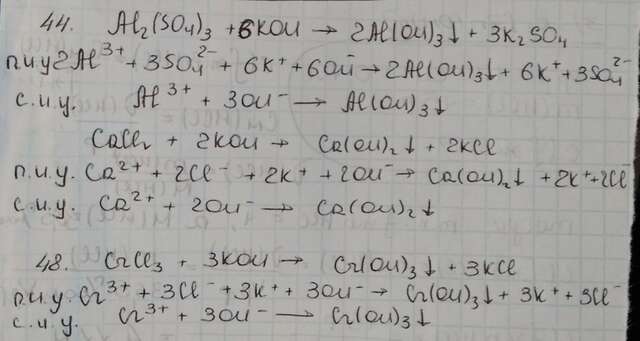 44. Al₂(SO₄)₃ + 6KOH → 2Al(OH)₃↓ + 3K₂SO₄
п.и.у 2Al³⁺ + 3SO₄²⁻ + 6K⁺ + 6OH⁻ → 2Al(OH)₃↓ + 6K⁺ + 3SO₄²⁻
с.и.у. Al³⁺ + 3OH⁻ → Al(OH)₃↓
CaCl₂ + 2KOH → Ca(OH)₂↓ + 2KCl
п.и.у. Ca²⁺ + 2Cl⁻ + 2K⁺ + 2OH⁻ → Ca(OH)₂↓ + 2K⁺ + 2Cl⁻
с.и.у. Ca²⁺ + 2OH⁻ → Ca(OH)₂↓
48. CrCl₃ + 3KOH → Cr(OH)₃↓ + 3KCl
п.и.у. Cr³⁺ + 3Cl⁻ + 3K⁺ + 3OH⁻ → Cr(OH)₃↓ + 3K⁺ + 3Cl⁻
с.и.у. Cr³⁺ + 3OH⁻ → Cr(OH)₃↓